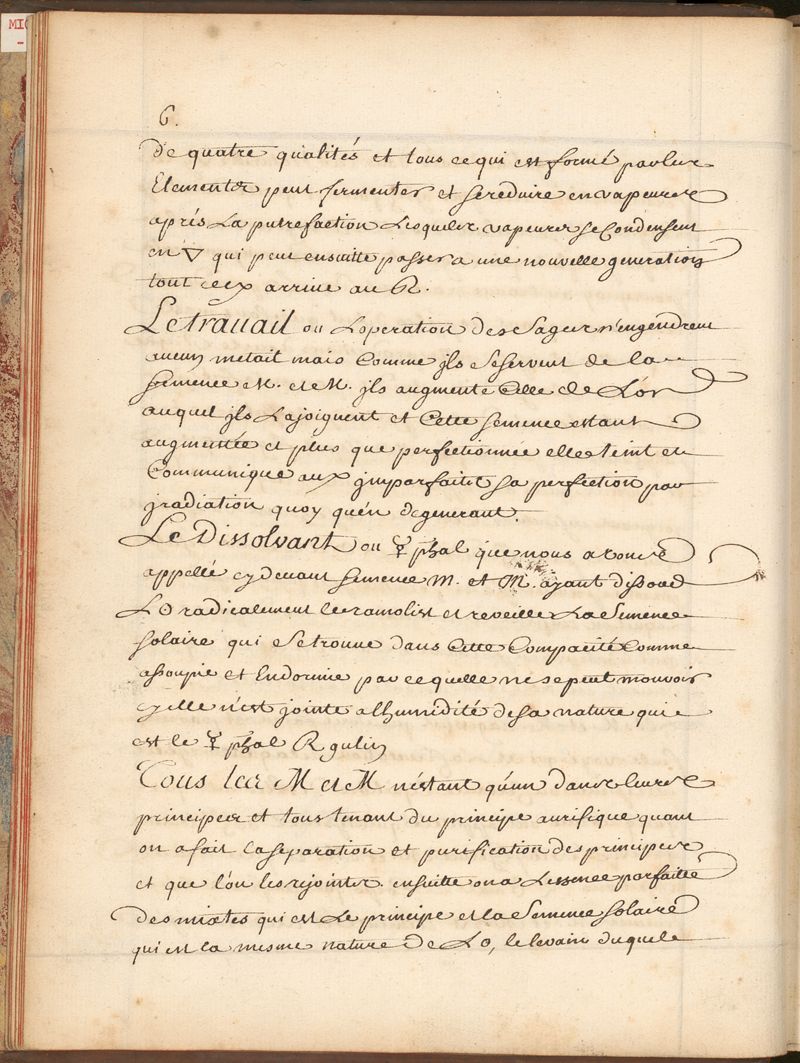 MI
6.
de quatre qualités et tous ce qui est formé par les
Elements peut fermenter et se reduire en vapeures
aprés La putrefaction Lesquelles vapeures se Condensent
en 🜄 qui peut ensuitte passer a une nouvelle generation
tout cecy arrive au R.
Le travail ou L'operation des Sages n'engendrent
aucun metail mais Comme jls se servent de la
semence M. et M. jls augmente Celle de L'or
auquel jls La joignent et Cette semence estant
augmentée et plus que perfectionnée elle teint et
Communique aux jmparfaits sa perfection par
jradiation quoy qu'en degenerant.
Le Dissolvant ou ☿ phal que nous avons
appellé cy devant semence M. et M. ayant dissoud
L'O radicalement le ramolist et reveille La Semence
solaire qui se trouve dans Cette Compacité Comme
assoupie et Endormie parce quelle ne se peut mouvoir
cy elle n'est jointe a lhumidité de sa nature qui
est le ☿ phal R gulin
Tous les M et M n'estant qu'un dans leurs
principes et tous tenant du principe aurifique quant
on a fait la separation et purification des principes
et que l'on les rejoints ensuitte on a Lessence parfaitte
des mixtes qui est Le principe et la Semence solaire
qui est la mesme nature de L'O, le levain duquele